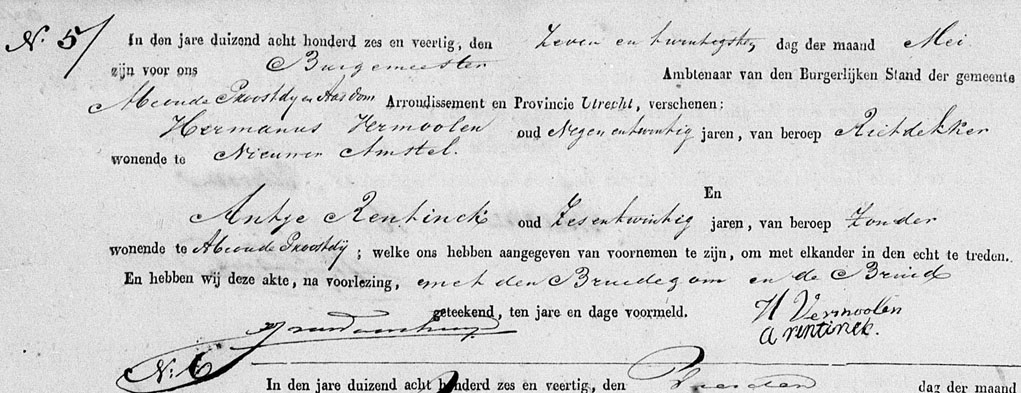 N. 5/ In den jare duizend acht honderd zes en veertig, den Zeven en twintigsten dag der maand Mei
zijn voor ons Burgemeester Ambtenaar van den Burgerlijken Stand der gemeente
Abcoude Proostdy en Aasdom Arrondissement en Provincie Utrecht, verschenen:
Hermanus Vermoolen oud Negen en twintig jaren, van beroep Rietdekker
wonende te Nieuwer Amstel.
En
Antje Rentinck oud Zes en twintig jaren, van beroep Zonder
wonende te Abcoude Proostdij; welke ons hebben aangegeven van voornemen te zijn, om met elkander in den echt te treden.
En hebben wij deze akte, na voorlezing, met den Bruidegom en de Bruid
geteekend, ten jare en dage voormeld. H Vermoolen
A rentinck.
N. 6
In den jare duizend acht honderd zes en veertig, den dag der maand